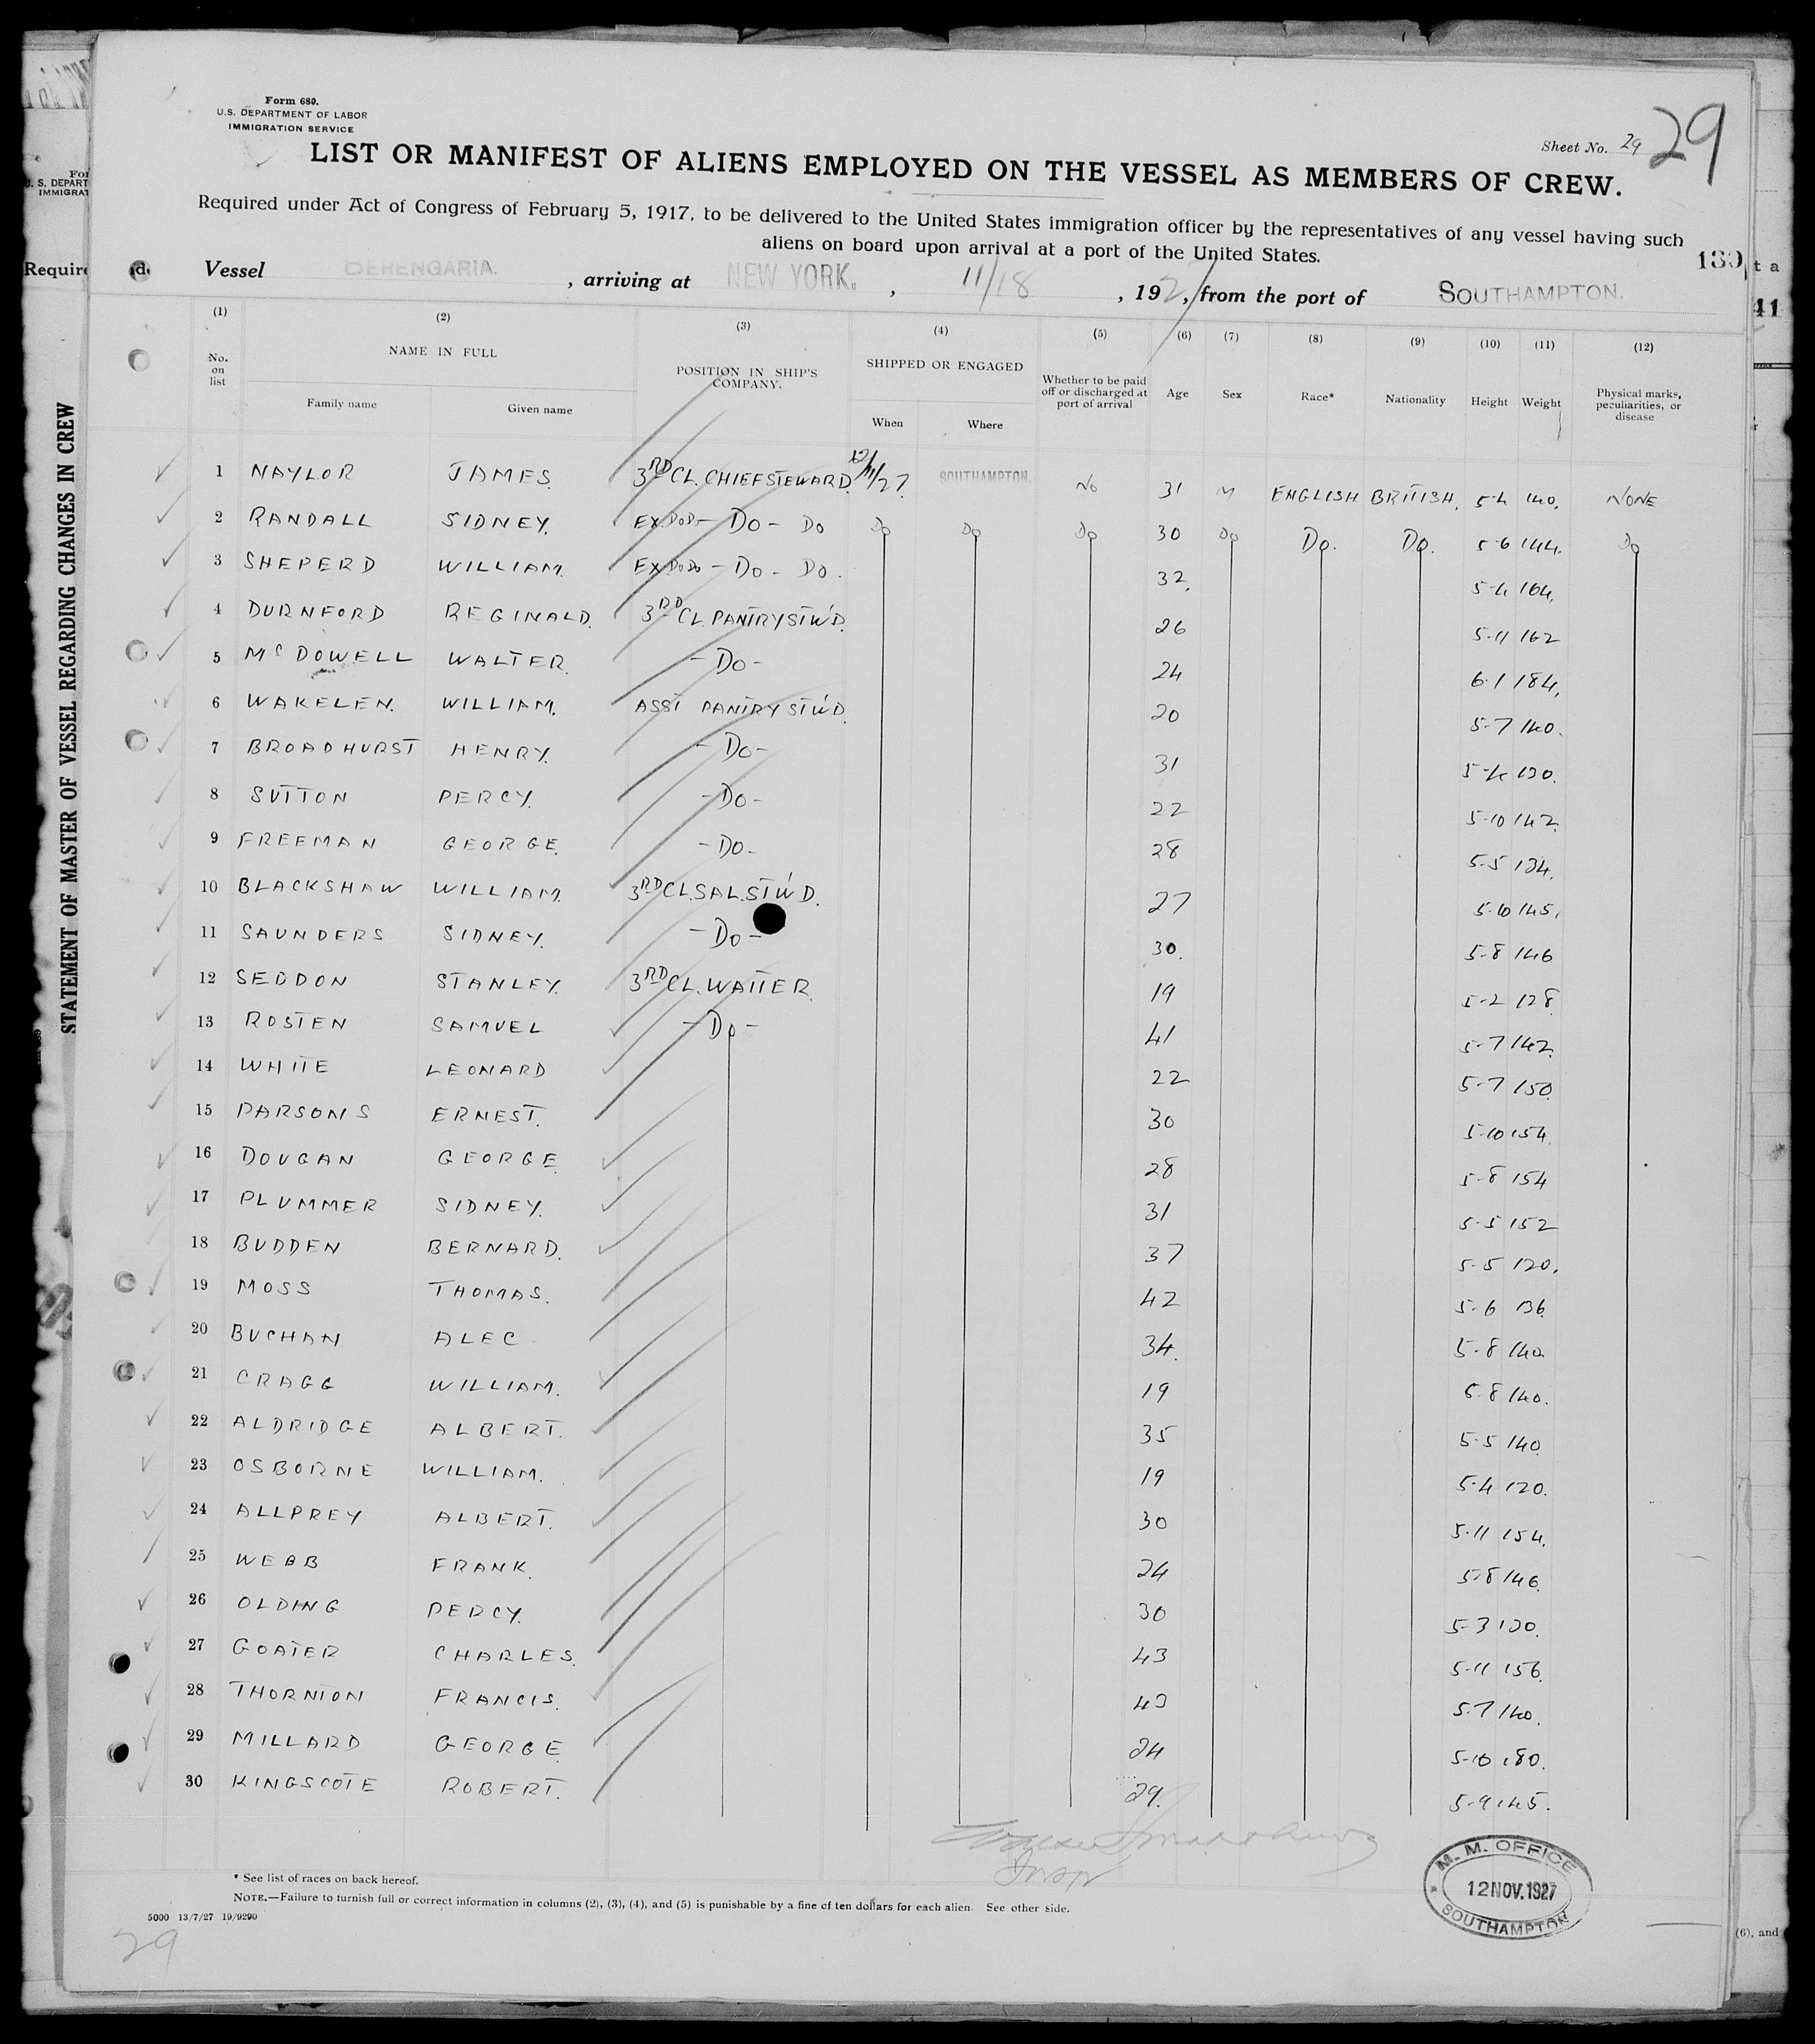 Form 680.
U.S. DEPARTMENT OF LABOR
IMMIGRATION SERVICE
Sheet No. 29
29
LIST OR MANIFEST OF ALIENS EMPLOYED ON THE VESSEL AS MEMBERS OF CREW.
Required under Act of Congress of February 5, 1917, to be delivered to the United States immigration officer by the representatives of any vessel having such
aliens on board upon arrival at a port of the United States.
Vessel BERENGARIA. , arriving at NEW YORK. , 11/18 , 1927, from the port of SOUTHAMPTON.
(1) (2) (3) (4) (5) (6) (7) (8) (9) (10) (11) (12)
No. on list NAME IN FULL POSITION IN SHIP'S COMPANY. SHIPPED OR ENGAGED Whether to be paid off or discharged at port of arrival Age Sex Race* Nationality Height Weight Physical marks, peculiarities, or disease
Family name Given name When Where
1 NAYLOR JAMES. 3RD CL. CHIEF STEWARD. 12/11/27. SOUTHAMPTON. No 31 M ENGLISH BRITISH. 5-4 140. NONE
2 RANDALL SIDNEY. EX.DoDo- Do - Do Do Do Do 30 Do Do. Do. 5-6 144. Do
3 SHEPERD WILLIAM. EX.DoDo - Do - Do. 32. 5-4 164.
4 DURNFORD REGINALD. 3RD CL. PANTRY STW'D. 26 5-11 162
5 McDOWELL WALTER. - Do - 24 6-1 184.
6 WAKELEN. WILLIAM. ASST PANTRY STW'D. 20 5-7 140.
7 BROADHURST HENRY. - Do - 31 5-4 120.
8 SUTTON PERCY. - Do - 22 5-10 142.
9 FREEMAN GEORGE. - DO - 28 5-5 134.
10 BLACKSHAW WILLIAM. 3RD CL. SAL. STW'D. 27 5-10 145.
11 SAUNDERS SIDNEY. - Do - 30. 5-8 146
12 SEDDON STANLEY. 3RD CL. WAITER. 19 5-2 128
13 ROSTEN SAMUEL - Do - 41 5-7 142.
14 WHITE LEONARD 22 5-7 150.
15 PARSONS ERNEST. 30 5-10 154.
16 DOUGAN GEORGE. 28 5-8 154
17 PLUMMER SIDNEY. 31 5-5 152
18 BUDDEN BERNARD. 37 5-5 120.
19 MOSS THOMAS. 42 5-6 136.
20 BUCHAN ALEC 34. 5-8 140
21 CRAGG WILLIAM. 19 5-8 140.
22 ALDRIDGE ALBERT. 35 5-5 140.
23 OSBORNE WILLIAM. 19 5-4 120.
24 ALLPREY ALBERT. 30 5-11 154.
25 WEBB FRANK. 24 5-8 146.
26 OLDING PERCY. 30 5-3 120.
27 GOATER CHARLES. 43 5-11 156.
28 THORNTON FRANCIS. 43 5-7 140.
29 MILLARD GEORGE. 24 5-10 180.
30 KINGSCOTE ROBERT. 29. 5-9 145.
* See list of races on back hereof.
NOTE.—Failure to furnish full or correct information in columns (2), (3), (4), and (5) is punishable by a fine of ten dollars for each alien. See other side.
5000 13/7/27 19/9290
29
M. M. OFFICE
12 NOV. 1927
SOUTHAMPTON
STATEMENT OF MASTER OF VESSEL REGARDING CHANGES IN CREW
U. S. DEPART
IMMIGRAT
Require
t a
41
(6), and